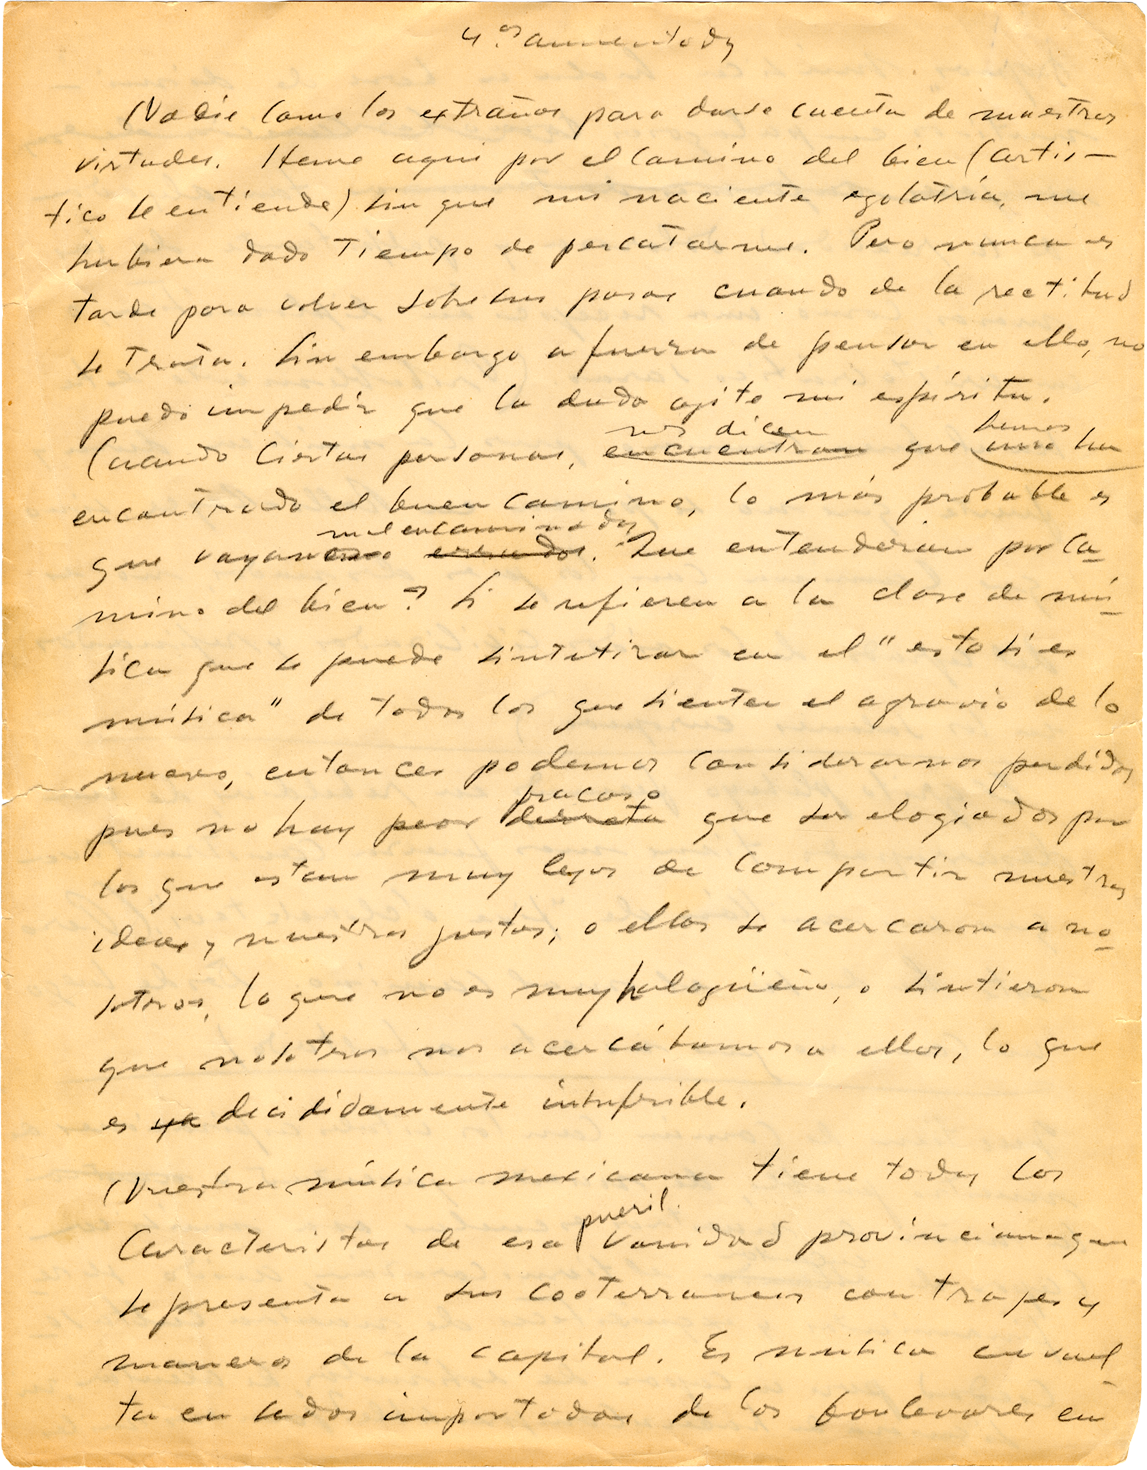 4.os aumentody
Nadie como los extraños para darse cuenta de nuestras
virtudes. Heme aqui por el camino del bien (artis-
tico se entiende) sin que mi naciente egolatría, me
hubiera dado tiempo de percatarme. Pero nunca es
tarde para volver sobre sus pasos cuando de la rectitud
se trata. Sin embargo a fuerza de pensar en ello, no
puedo impedir que la duda agite mi espíritu.
nos dicen hemos
Cuando ciertas personas, encuentran que uno ha
encontrado el buen camino, lo más probable es
mal encaminados
que vayamos errados. Que entenderan por ca-
mino del bien? Si se refieren a la clase de mú-
sica que se puede sintetizar en el "esto si es
música" de todos los que sienten el agravio de lo
nuevo, entonces podemos considerarnos perdidos
fracaso
pues no hay peor derrota que ser elogiados por
los que estan muy lejos de compartir nuestras
ideas y nuestros gustos; o ellos se acercaron a no-
sotros, lo que no es muy halagüeño, o sintieron
que nosotros nos acercábamos a ellos, lo que
es ya decididamente insufrible.
Nuestra música mexicana tiene todas las
pueril
Caracteristas de esa vanidad provinciana que
se presenta a sus coterraneos con trajes y
maneras de la capital. Es música envuel-
ta en sedas importadas de los boulevares en